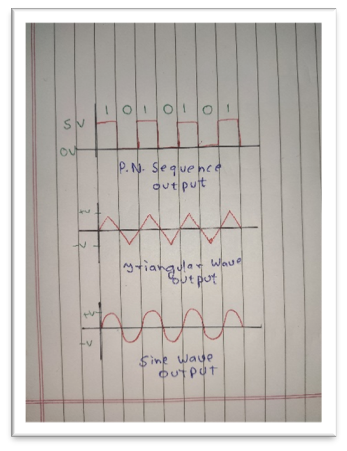 1 0 1 0 1 0 1
5V
0V
P.N. Sequence
output
+V
-V
Triangular Wave
output
+V
-V
Sine Wave
OUTPUT